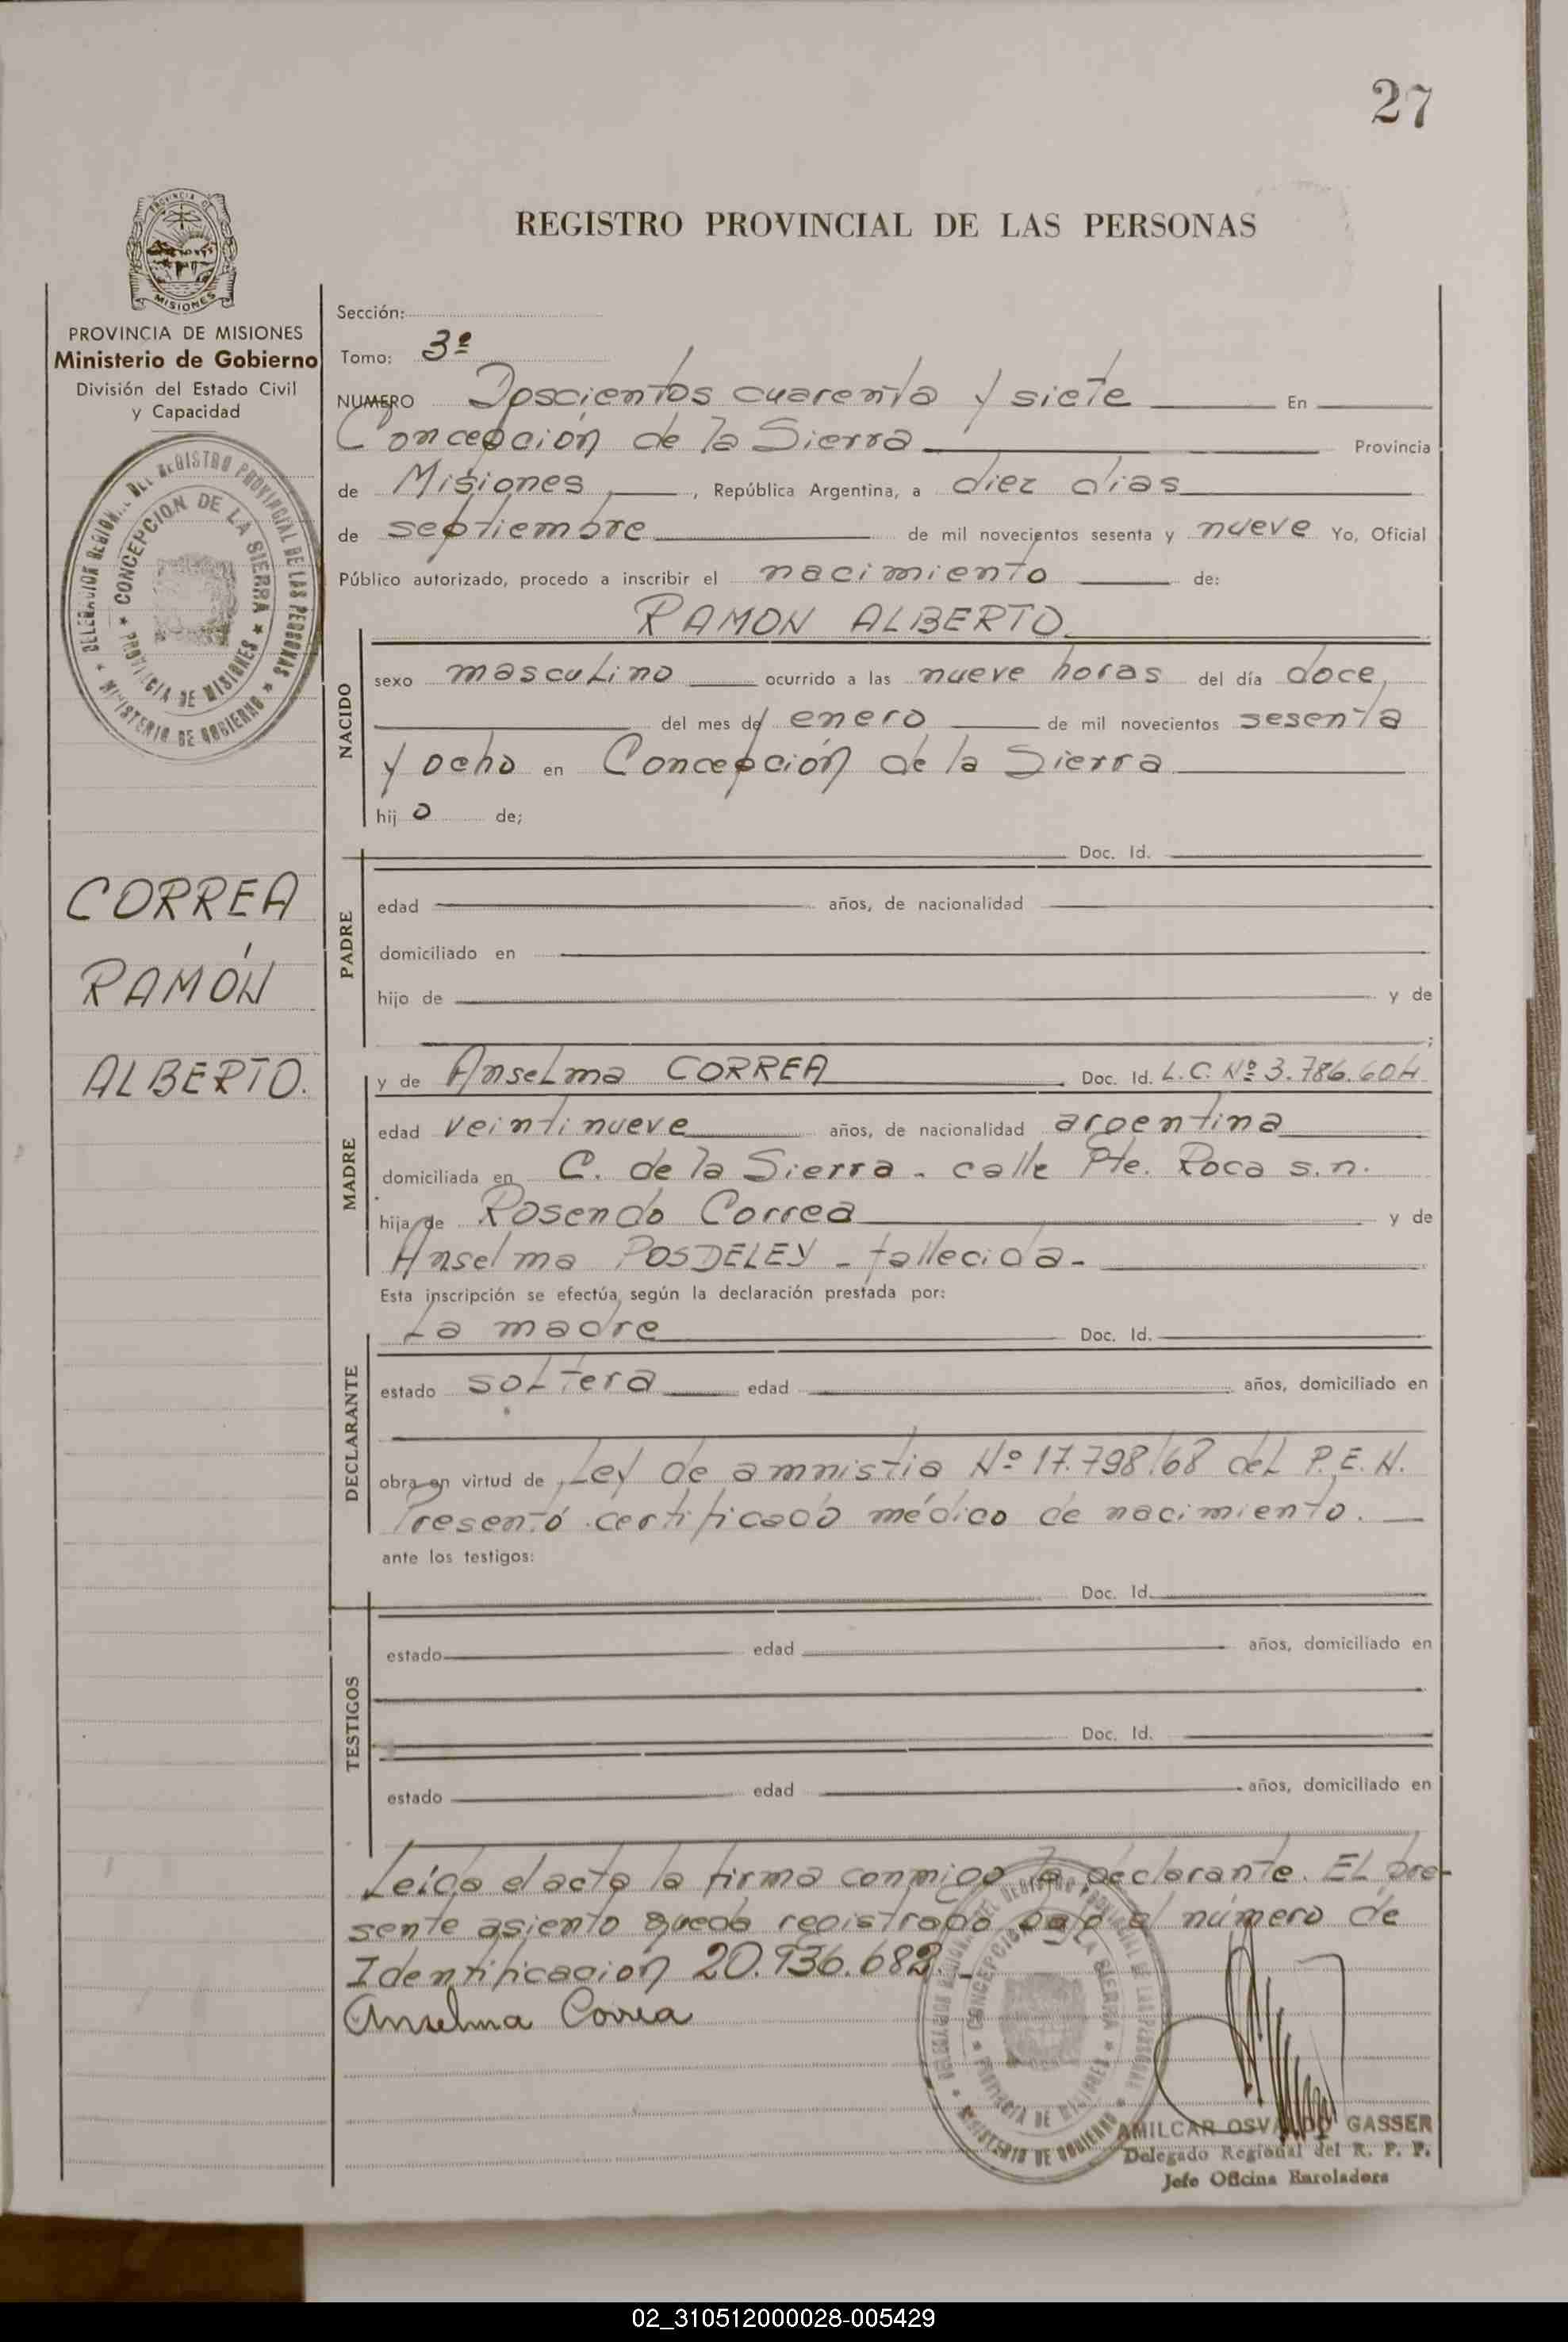 27
REGISTRO PROVINCIAL DE LAS PERSONAS
PROVINCIA DE MISIONES
Ministerio de Gobierno
División del Estado Civil
y Capacidad
CONCEPCION DE LA SIERRA
PROVINCIA DE MISIONES
MINISTERIO DE GOBIERNO
CORREA
RAMÓN
ALBERTO.
Sección:
Tomo: 3º
NUMERO Doscientos cuarenta y siete En
Concepción de la Sierra Provincia
de Misiones, República Argentina, a diez dias
de septiembre de mil novecientos sesenta y nueve Yo, Oficial
Público autorizado, procedo a inscribir el nacimiento de:
RAMON ALBERTO
NACIDO
sexo masculino ocurrido a las nueve horas del día doce,
del mes de enero de mil novecientos sesenta
y ocho en Concepción de la Sierra
hij o de;
PADRE
Doc. Id.
edad años, de nacionalidad
domiciliado en
hijo de y de
;
MADRE
y de Anselma CORREA Doc. Id. L.C. Nº 3.786.604
edad veintinueve años, de nacionalidad argentina
domiciliada en C. de la Sierra - calle Pte. Roca s.n.
hija de Rosendo Correa y de
Anselma POSDELEY - fallecida -
Esta inscripción se efectúa, según la declaración prestada por:
DECLARANTE
La madre Doc. Id.
estado soltera edad años, domiciliado en
obra en virtud de Ley de amnistia Nº 17.798/68 del P.E.N.
Presentó certificado médico de nacimiento.
ante los testigos:
TESTIGOS
Doc. Id.
estado edad años, domiciliado en
Doc. Id.
estado edad años, domiciliado en
Leída el acta la firma conmigo la declarante. El pre-
sente asiento queda registrado bajo el número de
Identificación 20.936.682.-
Anselma Correa
AMILCAR OSVALDO GASSER
Delegado Regional del R. P. P.
Jefe Oficina Enroladora
02_310512000028-005429